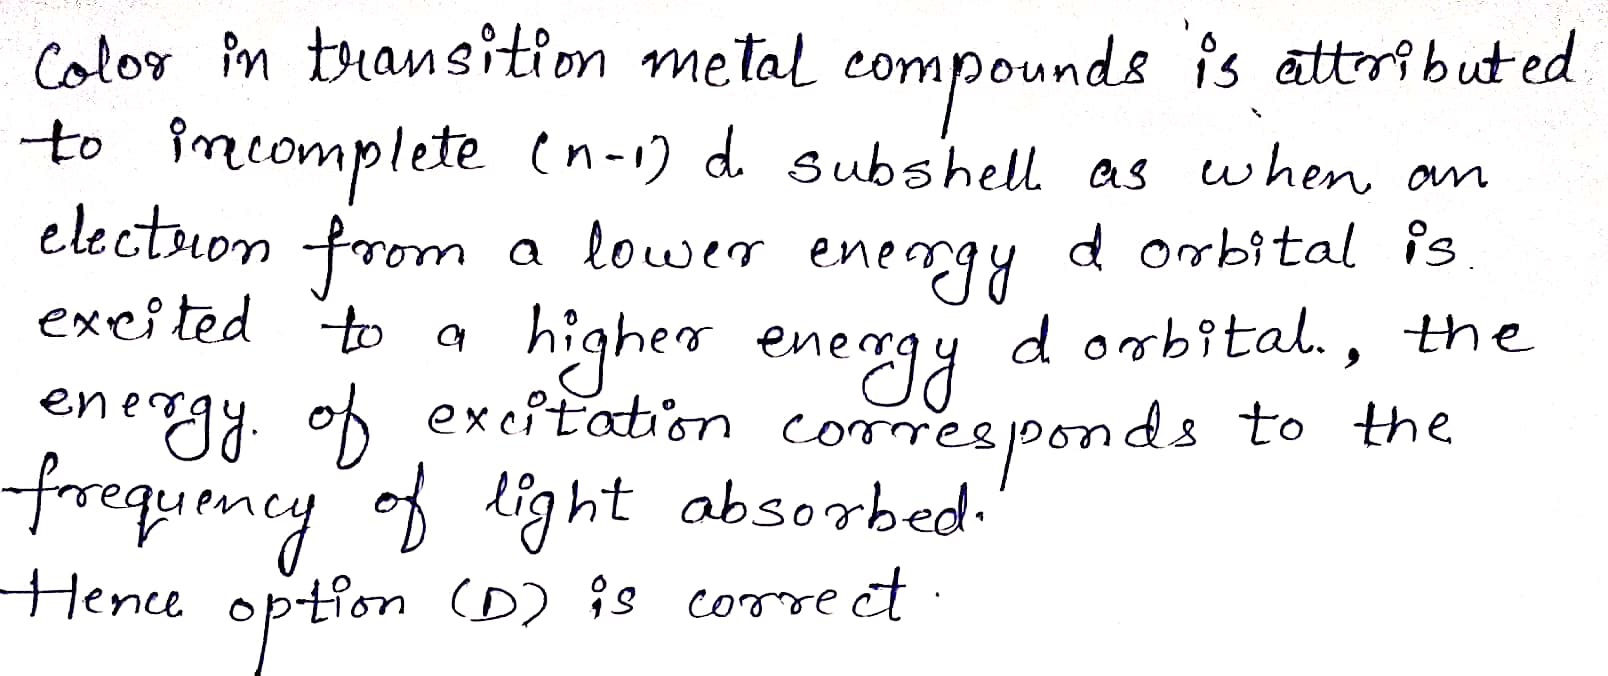 Color in transition metal compounds is attributed
to incomplete (n-1) d subshell as when an
electron from a lower energy d orbital is
excited to a higher energy d orbital, the
energy of excitation corresponds to the
frequency of light absorbed.
Hence option (D) is correct.